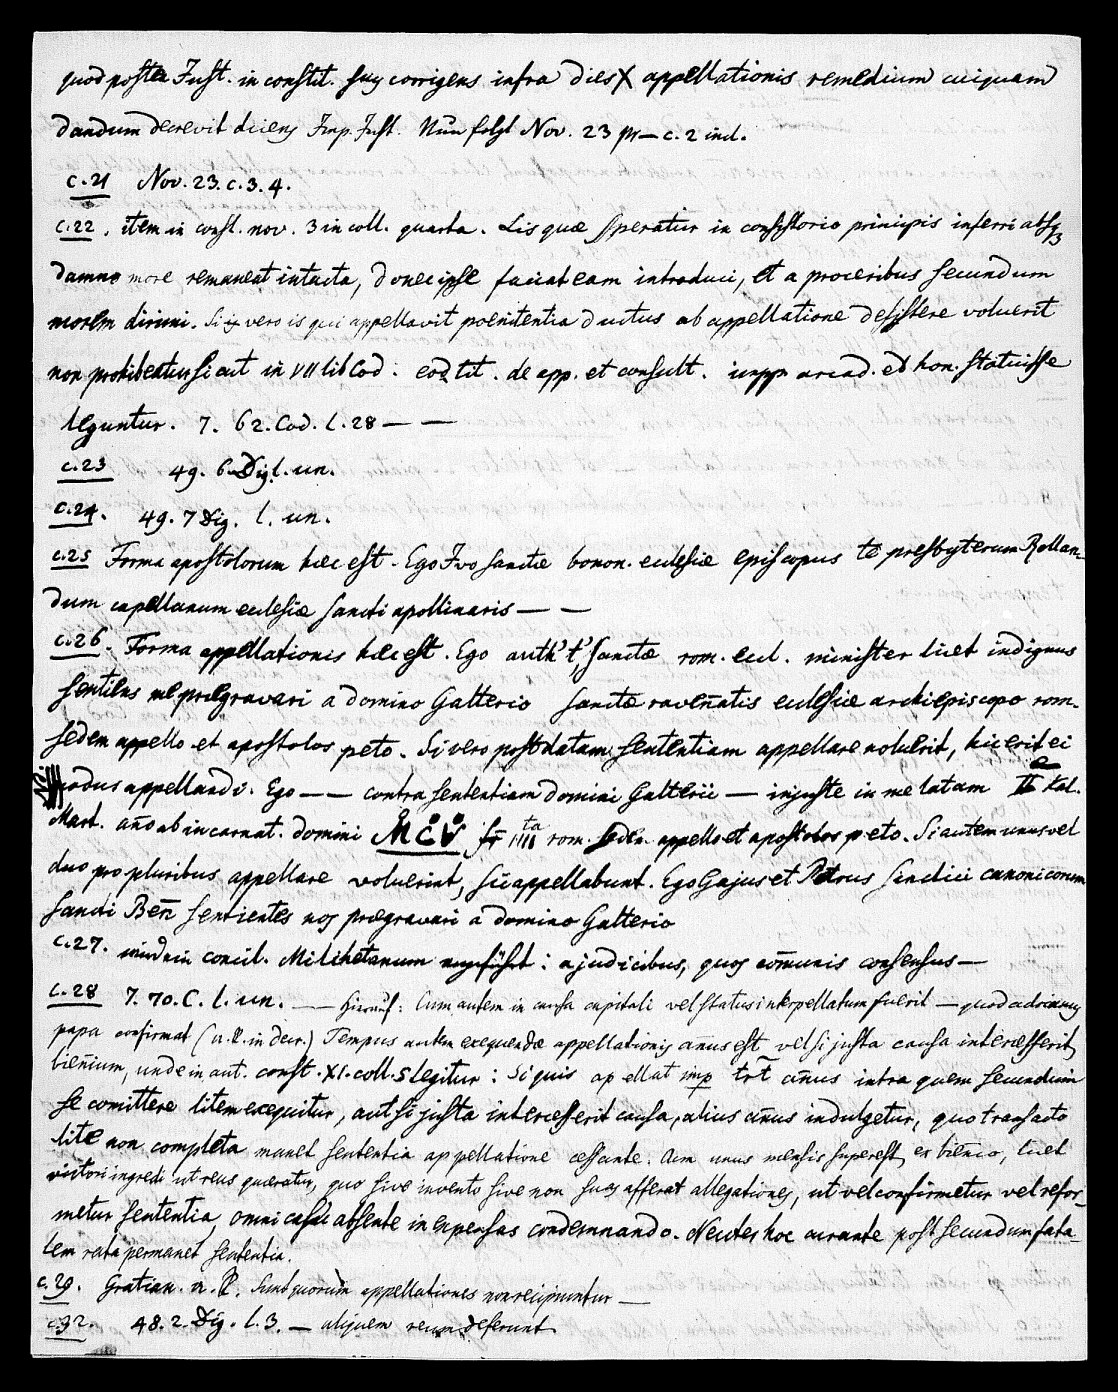 quod postea Just. in constit. suy corrigens infra dies X appellationis remedium cuiquam
dandum decrevit dicens Imp. Just. Nun folgt Nov. 23 pr — c. 2 incl.
c. 21 Nov. 23. c. 3. 4.
c. 22. item in const. nov. 3 in coll. quarta. Lis quæ speratur in consistorio principis inferri absq3
damno more remaneat intacta, donec ipse faciat eam introduci, et a proceribus secundum
morem dirimi. Si vero is qui appellavit poenitentia ductus ab appellatione desistere voluerit
non prohibeatur sicut in VII lib Cod. eod tit. de app. et consult. impp arcad. et hon. statuisse
leguntur. 7. 62. Cod. l. 28 — —
c. 23 49. 6. Dig. l. un.
c. 24. 49. 7 Dig. l. un.
c. 25 Forma apostolorum hæc est. Ego Ivo sanctæ bonon. ecclesiæ episcopus te presbyterum Rollan-
dum capellanum ecclesiæ sancti apollinaris — —
c. 26. Forma appellationis hæc est. Ego sanctæ rom. eccl. minister licet indignus
sentiens me prægravari a domino Galterio sanctæ ravennatis ecclesiæ archiepiscopo rom.
sedem appello et apostolos peto. Si vero post datam sententiam appellare voluerit, hic erit ei
modus appellandi. Ego — — contra sententiam domini Galterii — injuste in me latam II Kal.
Mart. año ab incarnat. domini MCV IIII ta rom. sedem appello et apostolos peto. Si autem unus vel
duo pro pluribus appellare voluerint, sic appellabunt. Ego Gajus et Petrus sindici canonicorum
sancti Ben sentientes nos prægravari a domino Galterio
c. 27. concil. Milihetanum angeführt: a judicibus, quos comunis consensus —
c. 28 7. 70. C. l. un. — Hierauf: Cum autem in causa capitali vel status interpellatum fuerit — quod adrianus
papa confirmat (in decr.) Tempus autem exequendæ appellationis anus est vel si justa causa intercesserit
bienium, unde in aut. const. XI. coll. 5 legitur: Si quis apellat anus intra quem secundum
se comittere litem exequitur, aut si justa intercesserit causa, alius anus indulgetur, quo transacto
lite non completa manet sententia appellatione cessante. Cum unus mensis superest ex bienio, licet
victori ingredi ut reus quæratur, quo sive invento sive non suas afferat allegationes, ut vel confirmetur vel refor-
metur sententia, omni casu absente in expensas condemnando. Neuter hoc curante post secundum fata-
lem rata permanet sententia.
c. 29. Gratian. Sunt quorum appellationes non recipiuntur —
c. 32. 48. 2. Dig. l. 3. — aliquem reum deferunt